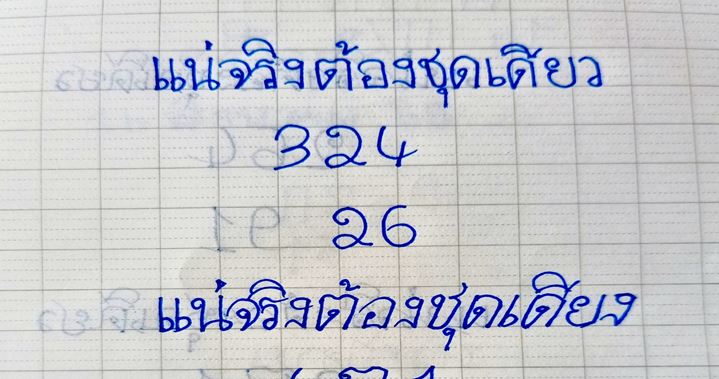 แน่จริงต้องชุดเดียว
324
26
แน่จริงต้องชุดเดียว